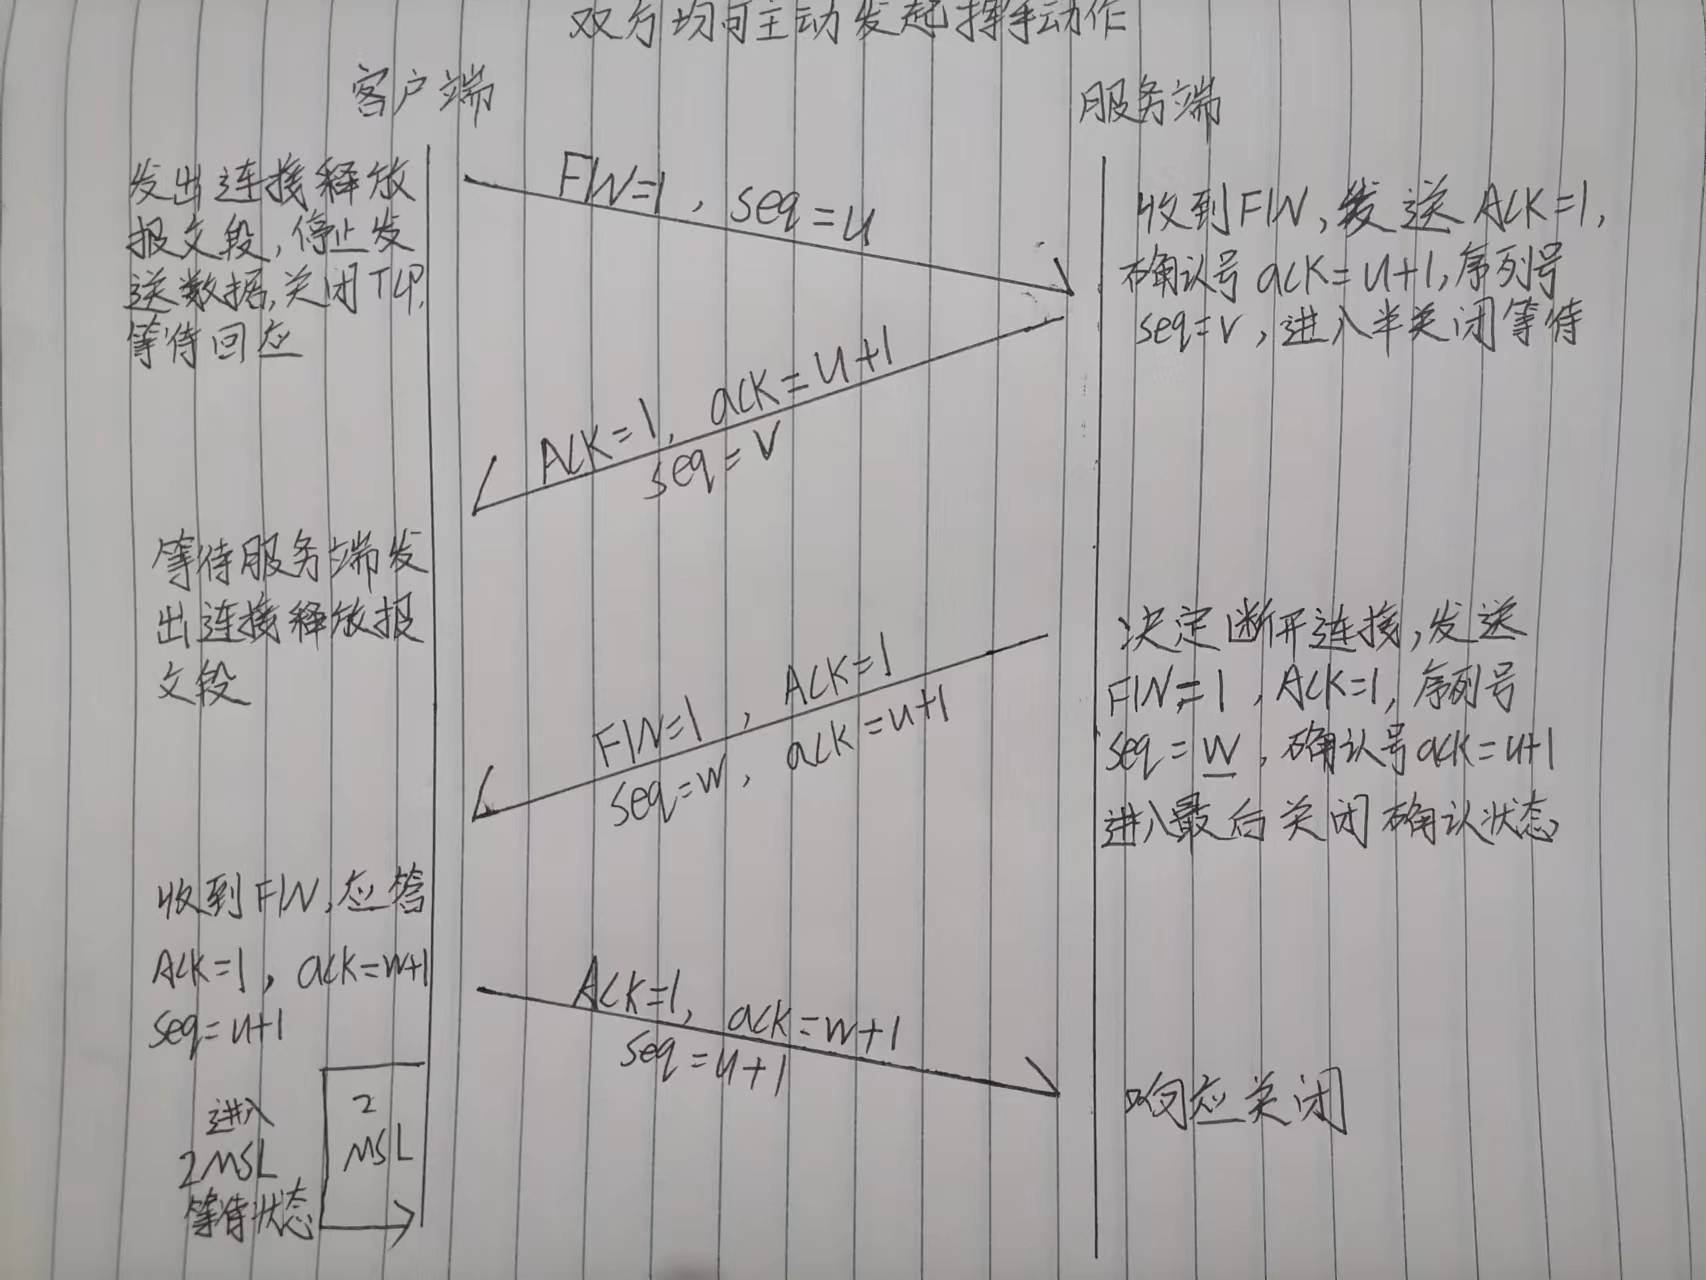 双方均可主动发起挥手动作
客户端
服务端
发出连接释放
报文段,停止发
送数据,关闭TCP,
等待回应
FIN=1,seq=u
收到FIN,发送ACK=1,
确认号ack=u+1,序列号
seq=v,进入半关闭等待
ACK=1,ack=u+1
seq=v
等待服务端发
出连接释放报
文段
决定断开连接,发送
FIN=1,ACK=1,序列号
seq=w,确认号ack=u+1
进入最后关闭确认状态
FIN=1,ACK=1
seq=w,ack=u+1
收到FIN,应答
ACK=1,ack=w+1
seq=u+1
ACK=1,ack=w+1
seq=u+1
响应关闭
进入
2MSL
等待状态
2
MSL